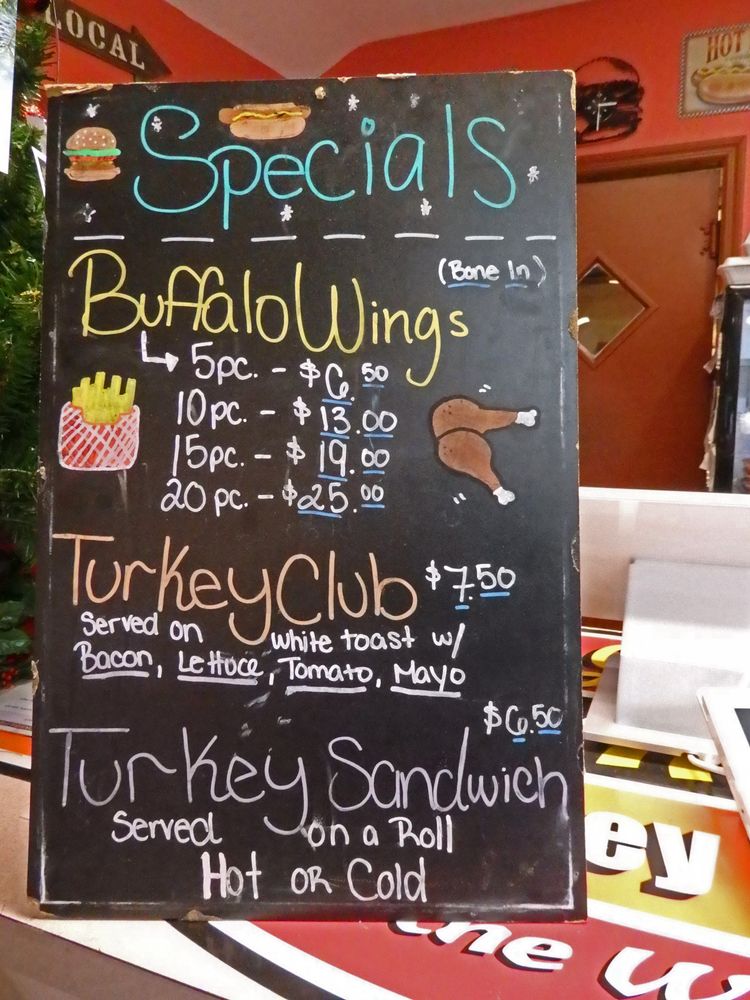 LOCAL
HOT
Specials
(Bone In)
Buffalo Wings
5pc. - $6.50
10pc. - $13.00
15pc. - $19.00
20pc. - $25.00
Turkey Club $7.50
Served on white toast w/
Bacon, Lettuce, Tomato, Mayo
$6.50
Turkey Sandwich
Served on a Roll
Hot OR Cold
ey
the W